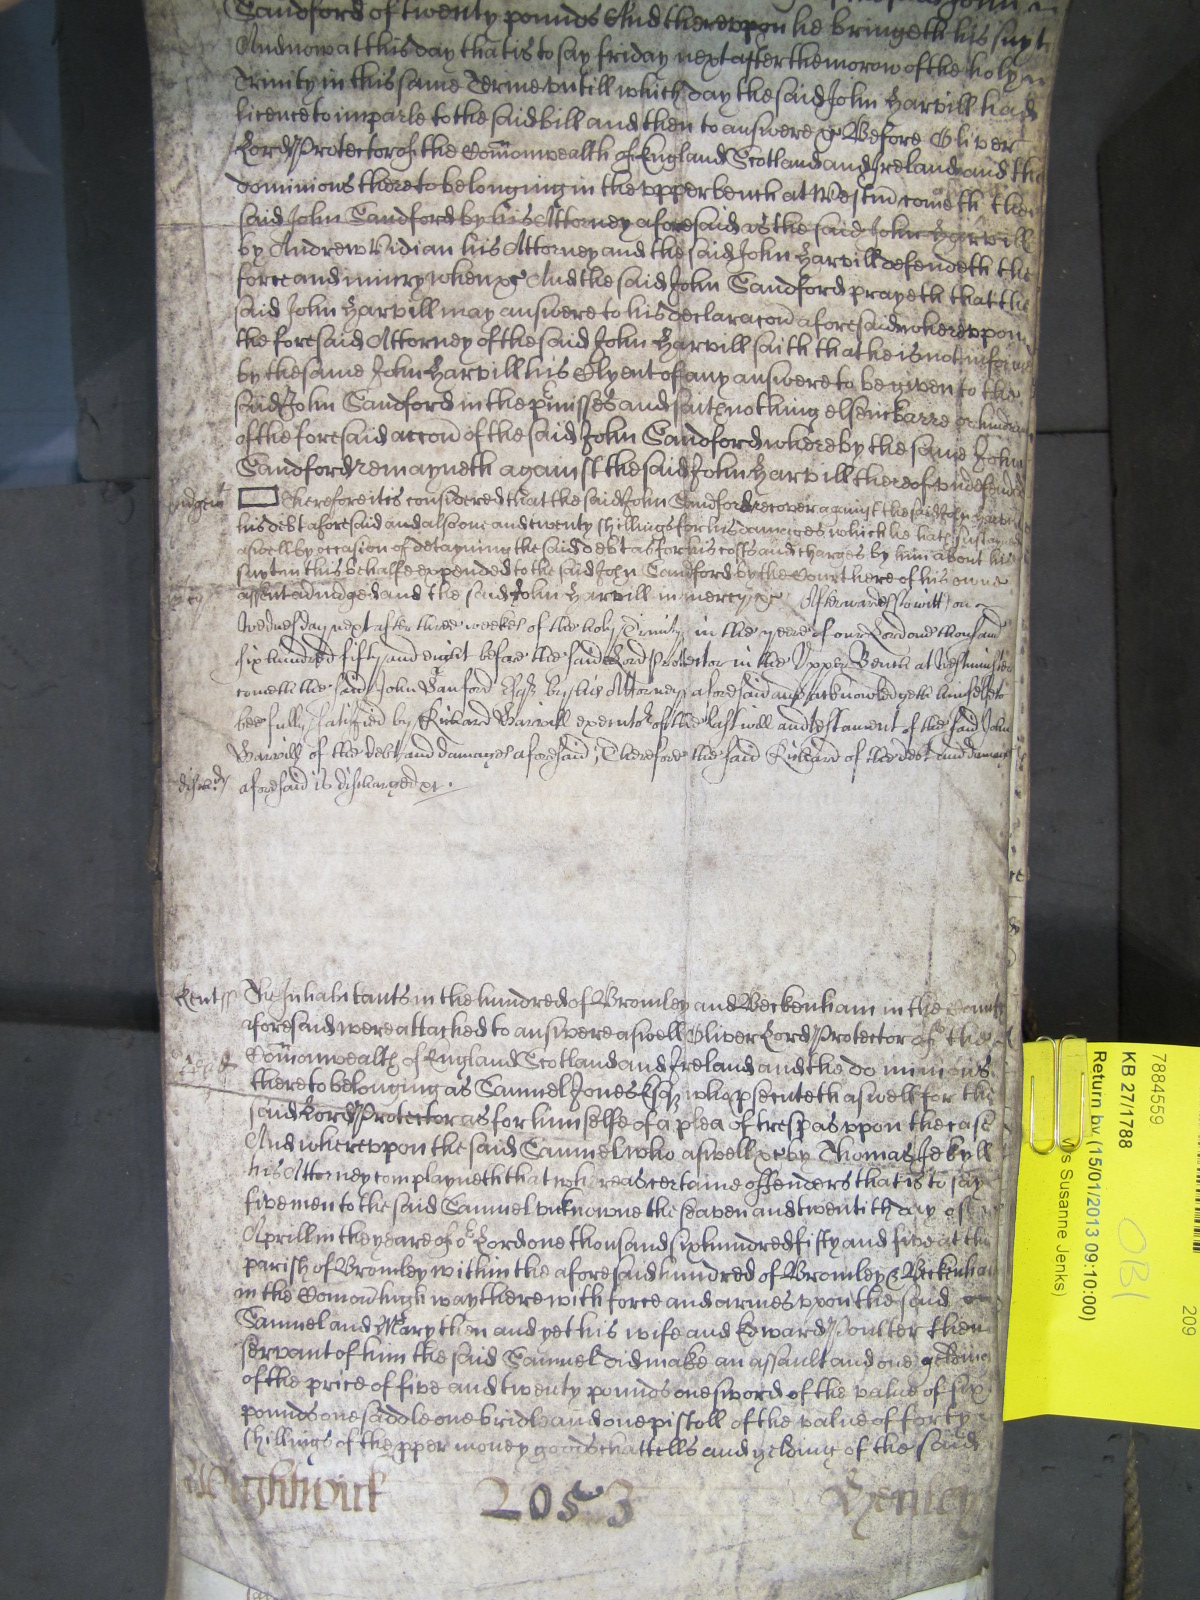 Sandford of twenty pounds And thereuppon he bringeth his suyt
And now at this day that is to say friday next after the morow of the holy
Trinity in this same Terme untill which day the said John Harvill had
licence to imparle to the said bill and then to answere &c Before Oliver
Lord Protector of the Comonwealth of England Scotland and Ireland and the
dominions thereto belonging in the upper bench at Westm cometh
said John Sandford by his Attorney aforesaid as the said John Harvill
by Andrew Vidian his Attorney and the said John Harvill defendeth the
force and iniury when &c And the said John Sandford prayeth that the
said John Harvill may answere to his declaracon aforesaid whereuppon
the foresaid Attorney of the said John Harvill saith that he is not informed
by the same John Harvill his Clyent of any answere to be given to the
said John Sandford in the premisses and saith nothing else in barre or
of the foresaid accon of the said John Sandford whereby the same John
Sandford remayneth against the said John Harvill thereof undefended
Therefore it is considered that the said John Sandford recover against the said John Harvill
his debt aforesaid and also one and twenty shillings for his damages which he hath sustayned
aswell by occasion of detayning the said debt as for his costs and charges by him about his
suyt in this behalfe expended to the said John Sandford by the Court here of his owne
assent adiudged and the said John Harvill in mercy &c Afterwards to witt on
Wednesday next after three weekes of the holy Trinity in the yeere of our Lord one thousand
six hundred fifty and eight before the said Lord Protector in the Upper Bench at Westminster
cometh the said John Sanford Esq by his Attorney aforesaid and acknowledgeth himselfe to
bee fully satisfied by Richard Harvill executor of the last will and testament of the said John
Harvill of the debt and damages aforesaid, Therefore the said Richard of the debt and damages
aforesaid is discharged &c.
Kent ss The Inhabitants in the hundred of Bromley and Beckenham in the County
aforesaid were attached to answere aswell Oliver Lord Protector of the
Comonwealth of England Scotland and Ireland and the dominions
thereto belonging as Samuel Jones Esq who prosecuteth aswell for the
said Lord Protector as for himselfe of a plea of trespas uppon the case
And whereuppon the said Samuel who aswell &c by Thomas Jekyll
his Attorney complayneth that whereas certaine offenders that is to say
five men to the said Samuel unknowne the seaven and twentith day of
Aprill in the yeare of or Lord one thousand six hundred fifty and five at the
parish of Bromley within the aforesaid hundred of Bromley & Beckenham
in the Comon high way there with force and armes uppon the said
Samuel and Mary then and yet his wife and Edward Poulter then
servant of him the said Samuel did make an assault and one gelding
of the price of five and twenty pounds one sword of the value of six
pounds one saddle one bridle and one pistoll of the value of forty
shillings of the pper money goods chattells and gelding of the said
Wightwick 2053 Henley
7884559
KB 27/1788
Return by (15/01/2013 09:10:00)
Susanne Jenks)
OBI
209